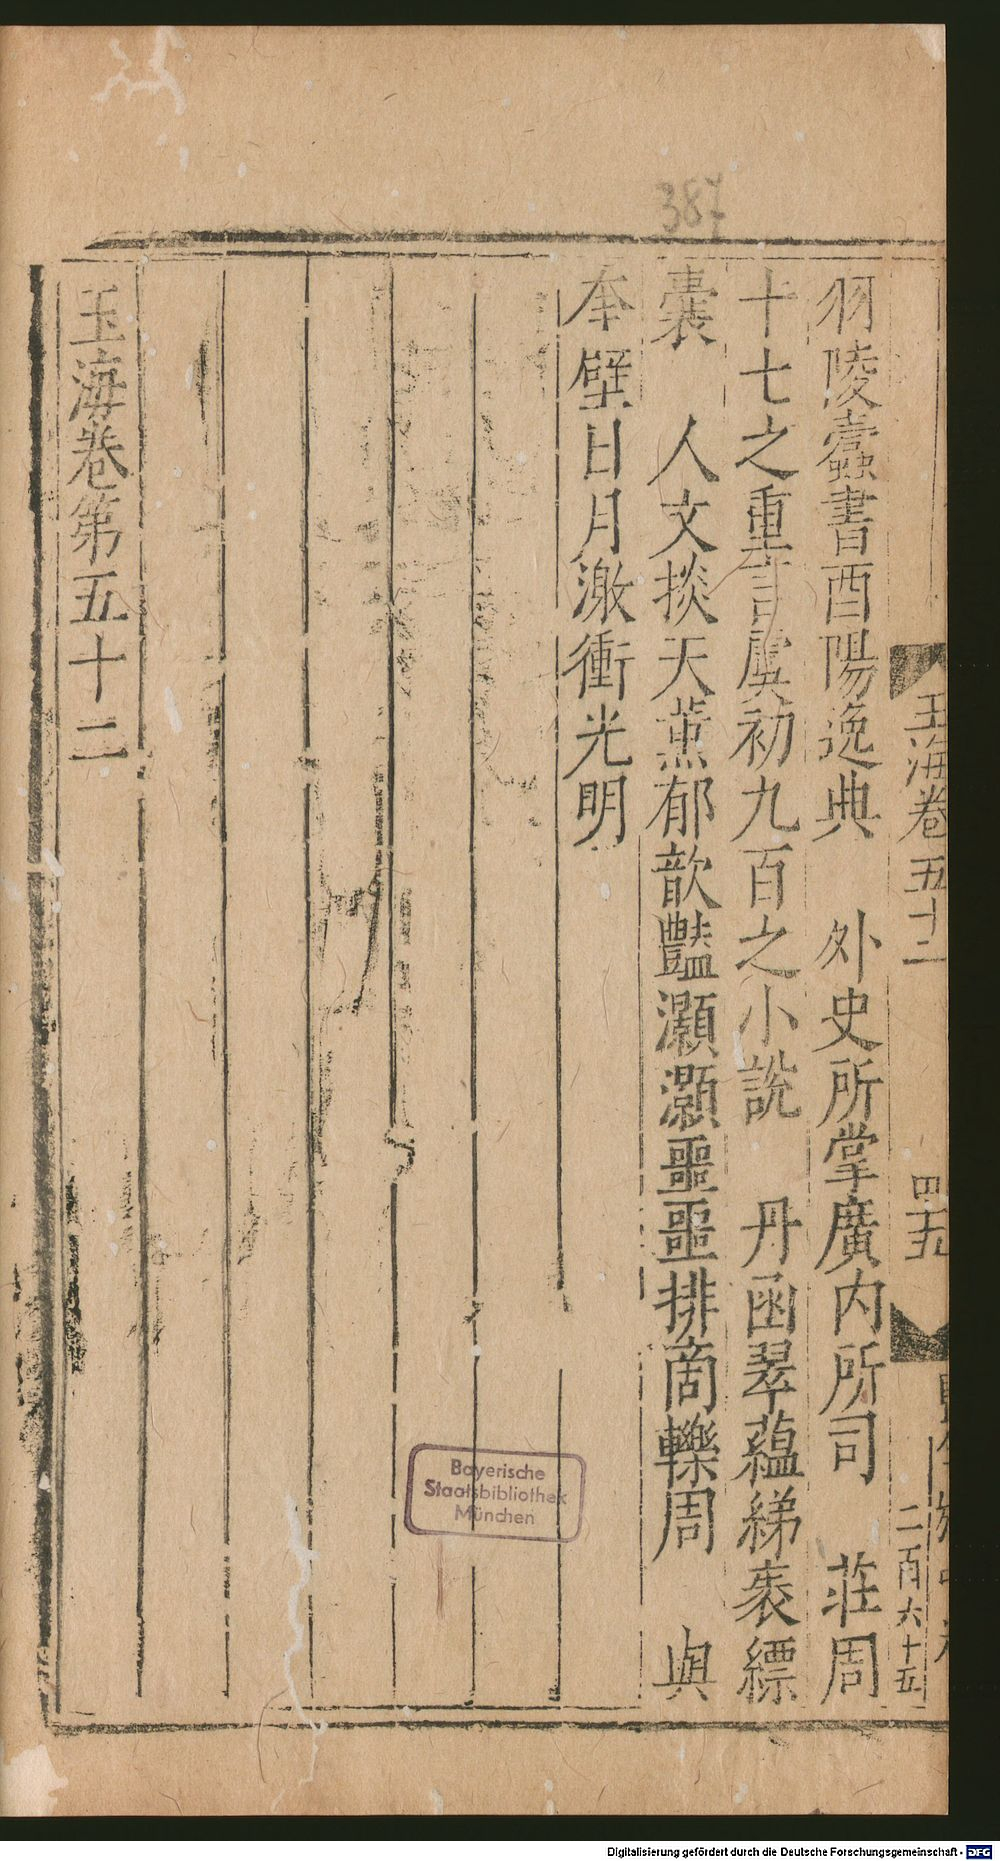 玉海卷五十二
四十五
二百六十五
羽陵蠹書酉陽逸典　外史所掌廣内所司　莊周
十七之重言虞初九百之小說　丹函翠蘊綈袠縹
囊　人文掞天薰郁歆豔灝灝噩噩排商轢周　與
奎壁日月激衝光明
玉海卷第五十二
387
Bayerische
Staatsbibliothek
München
Digitalisierung gefördert durch die Deutsche Forschungsgemeinschaft - DFG